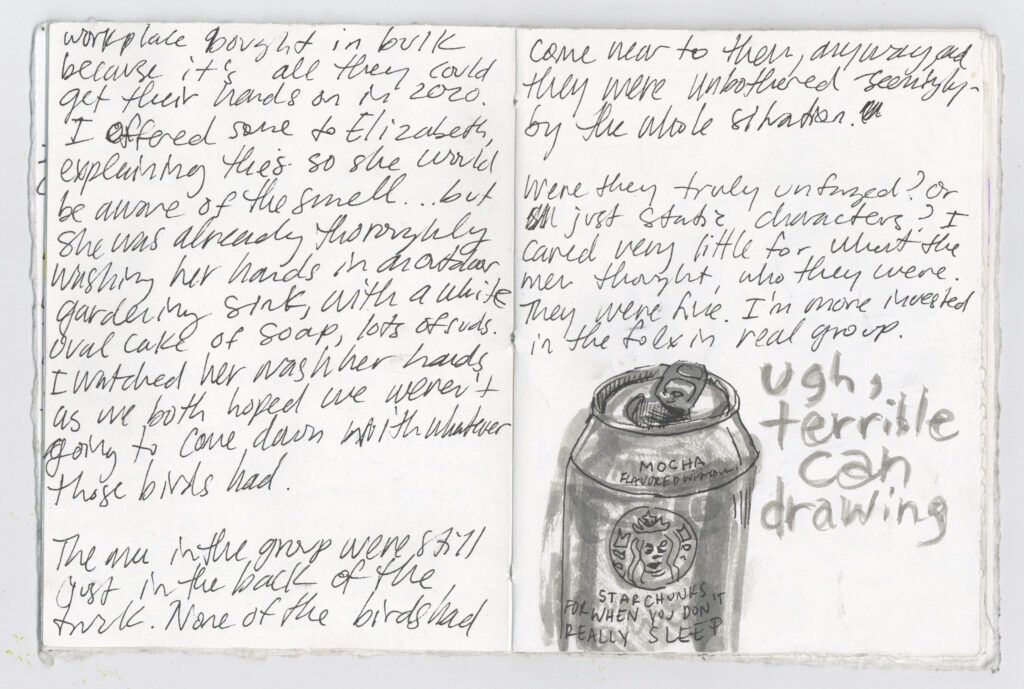 workplace bought in bulk
because it's all they could
get their hands on in 2020.
I offered some to Elizabeth,
explaining this so she would
be aware of the smell... but
she was already thoroughly
washing her hands in an outdoor
gardening sink, with a white
oval cake of soap, lots of suds.
I watched her wash her hands
as we both hoped we weren't
going to come down with whatever
those birds had.
The men in the group were still
just in the back of the
truck. None of the birds had
come near to them, anyway, and
they were unbothered seemingly-
by the whole situation.
Were they truly unfazed? Or
just static characters? I
cared very little for what the
men thought, who they were.
They were fine. I'm more invested
in the folx in real group.
ugh,
terrible
can
drawing
MOCHA
FLAVORED
STARCHUNKS
FOR WHEN YOU DON'T
REALLY SLEEP